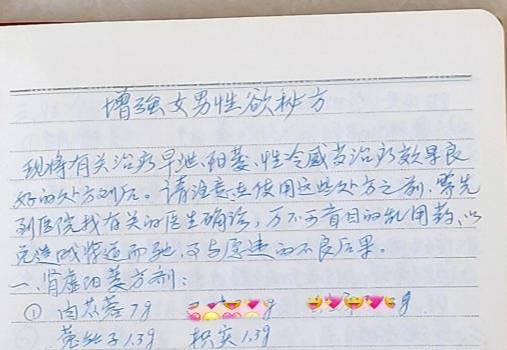 增强女男性欲秘方
现将有关治疗早泄、阳萎、性冷感等治疗效果良
好的处方列后。请注意在使用这些处方之前,需先
到医院找有关的医生确诊,万不可盲目的乱用药,以
免造成背道而驰,事与愿违的不良后果。
一、肾虚阳萎方剂:
① 肉苁蓉7g g g
菟丝子1.3g 枳实1.3g